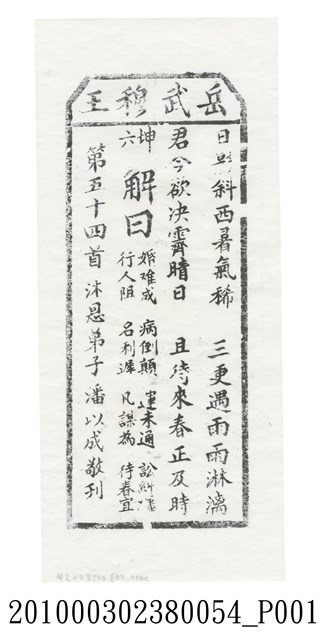 岳武穆王
日影斜西暑氣稀 三更遇雨雨淋漓
君今欲決霽晴日 且待來春正及時
坤六 解曰
婚难成 病倒顛 運未通 訟糾
行人阻 名利遲 凡謀為 待春宜
第五十四首 沐恩弟子潘以成敬刊
201000302380054_P001